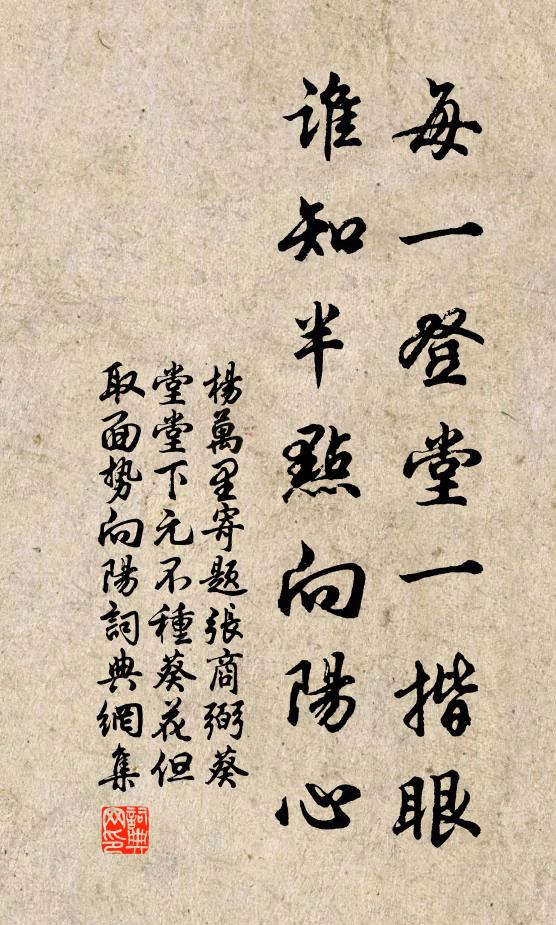 每一登堂一揩眼
誰知半點向陽心
楊萬里寄題張商弼葵
堂堂下元不種葵花但
取面势向陽詞典網集
詞典
网印